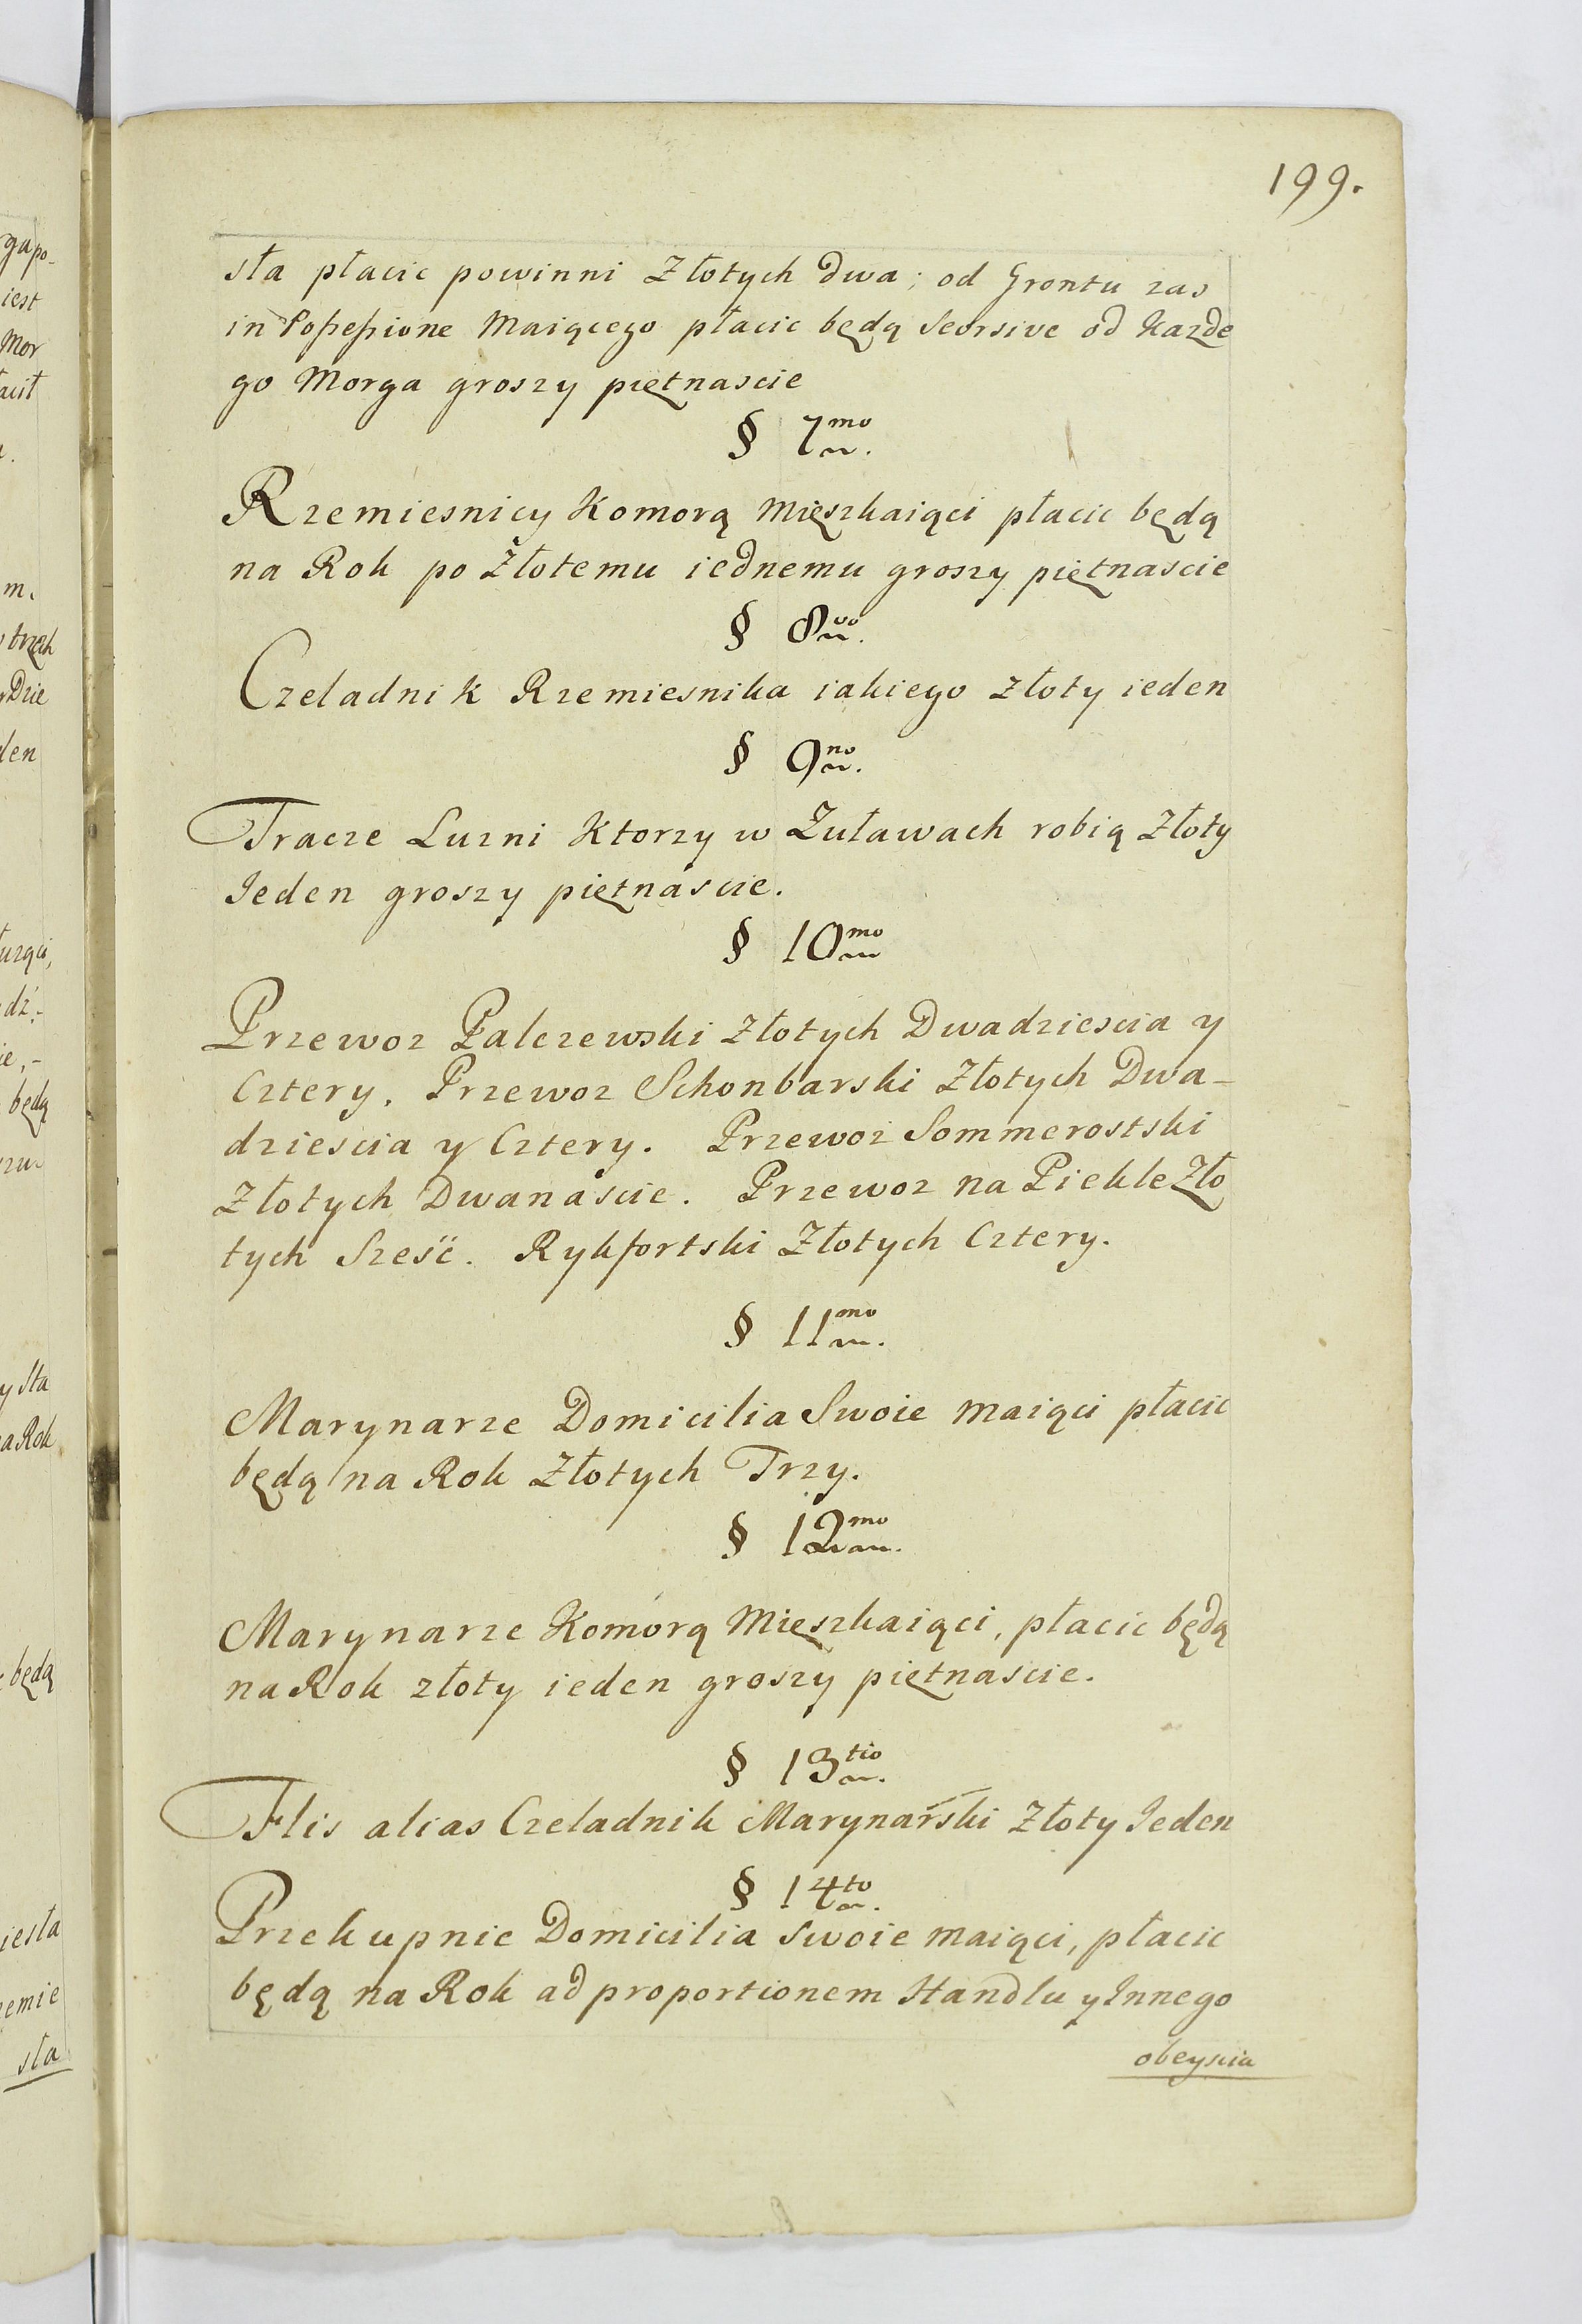 199.
sła płacic powinni Złotych dwa; od Grontu zas
in Possessione Maiącego płacic będą Seorsive od Kazde
go Morga groszy piętnascie
§ 7mo.
Rzemiesnicy Komorą Mieszkaiąci płacic będą
na Rok po Złotemu iednemu groszy piętnascie
§ 8vo.
Czeladnik Rzemiesnika iakiego złoty ieden
§ 9no.
Tracze Luzni Ktorzy w Zuławach robią Złoty
Jeden groszy piętnaście.
§ 10mo
Przewoz Palczewski Złotych Dwadziescia y
Cztery. Przewoz Schonbarski Złotych Dwa-
dziescia y Cztery. Przewoz Sommerostski
Złotych Dwanaście. Przewoz na Piekle Zło
tych Sześć. Rykfortski Złotych Cztery.
§ 11mo.
Marynarze Domicilia Swoie maiąci płacic
będą na Rok Złotych Trzy.
§ 12mo.
Marynarze Komorą Mieszkaiąci, płacic będą
na Rok złoty ieden groszy piętnascie.
§ 13tio.
Flis alias Czeladnik Marynarski Złoty Jeden
§ 14to.
Przekupnie Domicilia swoie maiąci, płacic
będą na Rok ad proportionem Handlu y Innego
obeyscia
gapo-
iest
Mor
acił
m.
trzech
Dzie
den
będą
y sta
na Rok
będą
iesła
emie
sła